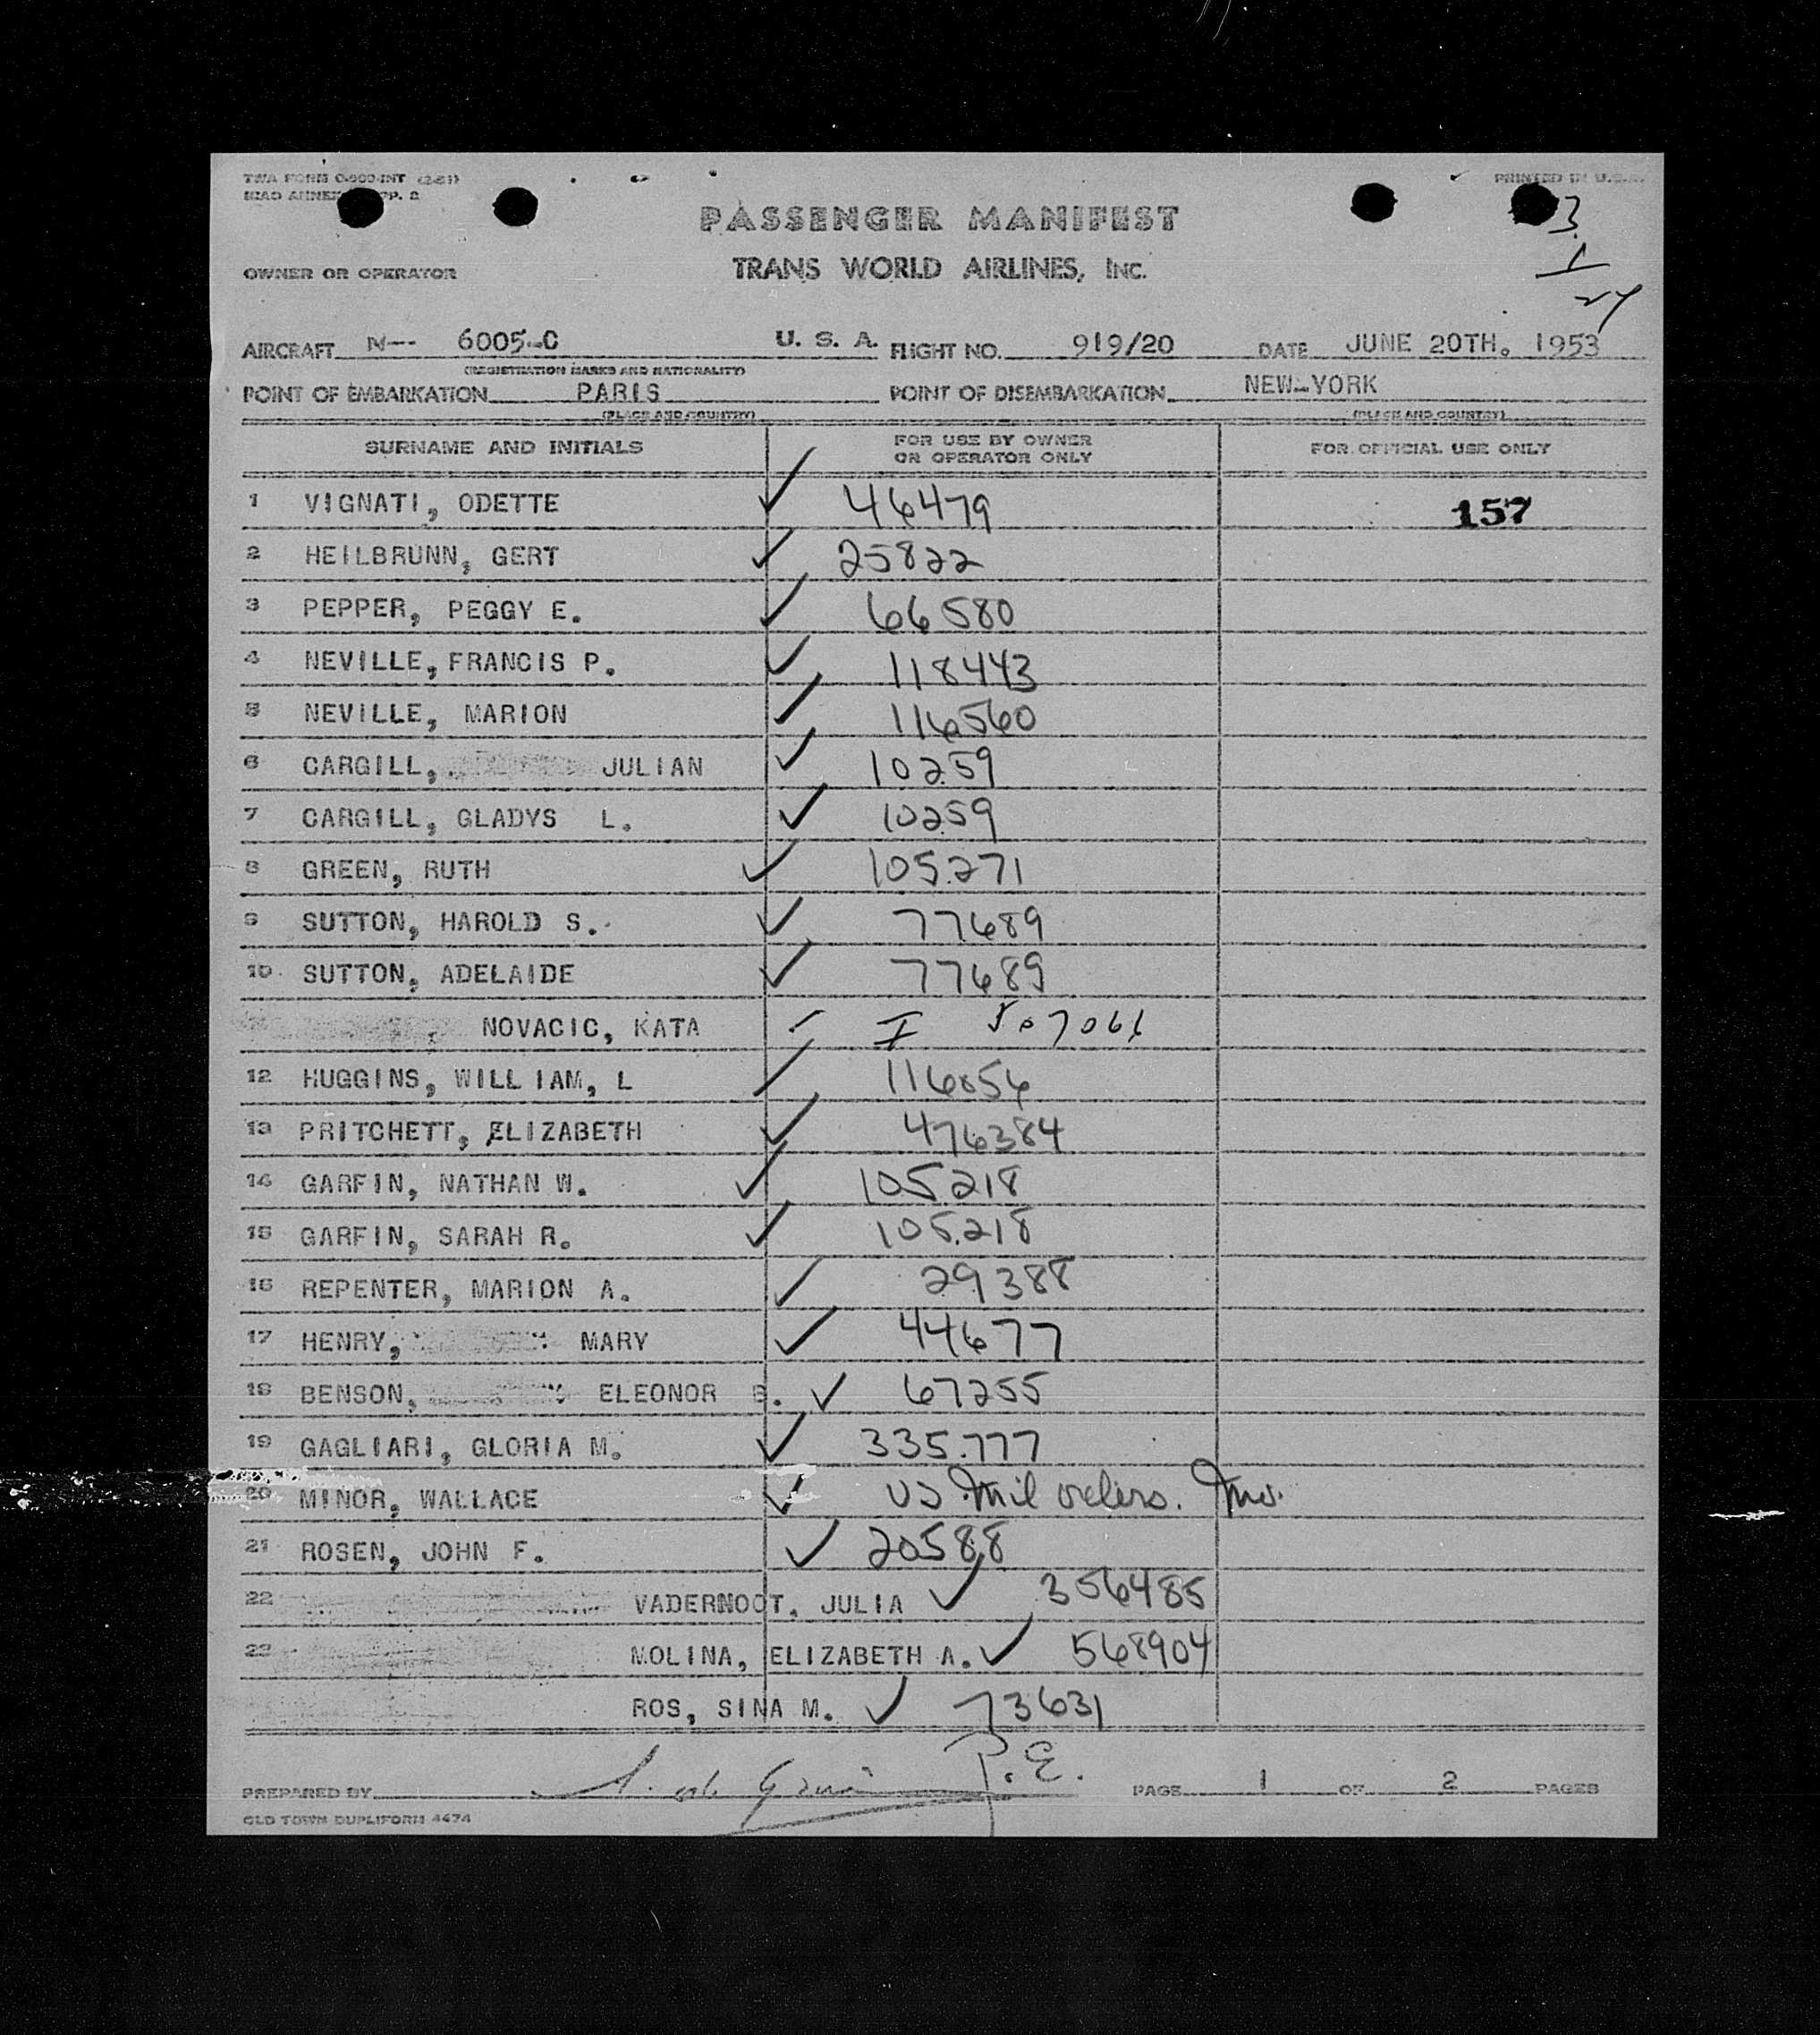 TWA FORM 0-900-INT (2-51) PRINTED IN U.S.A.
ICAO ANNEX PP. 2
3
PASSENGER MANIFEST
OWNER OR OPERATOR TRANS WORLD AIRLINES, INC.
1
24
AIRCRAFT N-- 6005-C U. S. A. FLIGHT NO. 919/20 DATE JUNE 20TH. 1953
(REGISTRATION MARKS AND NATIONALITY)
POINT OF EMBARKATION PARIS POINT OF DISEMBARKATION NEW-YORK
(PLACE AND COUNTRY) (PLACE AND COUNTRY)
SURNAME AND INITIALS FOR USE BY OWNER OR OPERATOR ONLY FOR OFFICIAL USE ONLY
1 VIGNATI, ODETTE ✓ 46479 157
2 HEILBRUNN, GERT ✓ 25822
3 PEPPER, PEGGY E. ✓ 66580
4 NEVILLE, FRANCIS P. ✓ 118443
5 NEVILLE, MARION ✓ 116560
6 CARGILL, JULIAN ✓ 10259
7 CARGILL, GLADYS L. ✓ 10259
8 GREEN, RUTH ✓ 105271
9 SUTTON, HAROLD S. ✓ 77689
10 SUTTON, ADELAIDE ✓ 77689
NOVACIC, KATA ✓ I
12 HUGGINS, WILLIAM, L ✓ 116056
13 PRITCHETT, ELIZABETH ✓ 476384
14 GARFIN, NATHAN W. ✓ 105218
15 GARFIN, SARAH R. ✓ 105218
16 REPENTER, MARION A. ✓ 29388
17 HENRY, MARY ✓ 44677
18 BENSON, ELEONOR B. ✓ 67255
19 GAGLIARI, GLORIA M. ✓ 335777
20 MINOR, WALLACE ✓ US Mil orders.
21 ROSEN, JOHN F. ✓ 20588
22 VADERNOOT, JULIA ✓ 356485
23 MOLINA, ELIZABETH A. ✓ 568904
ROS, SINA M. ✓ 73631
PREPARED BY P.E. PAGE 1 OF 2 PAGES
OLD TOWN DUPLIFORM 4474